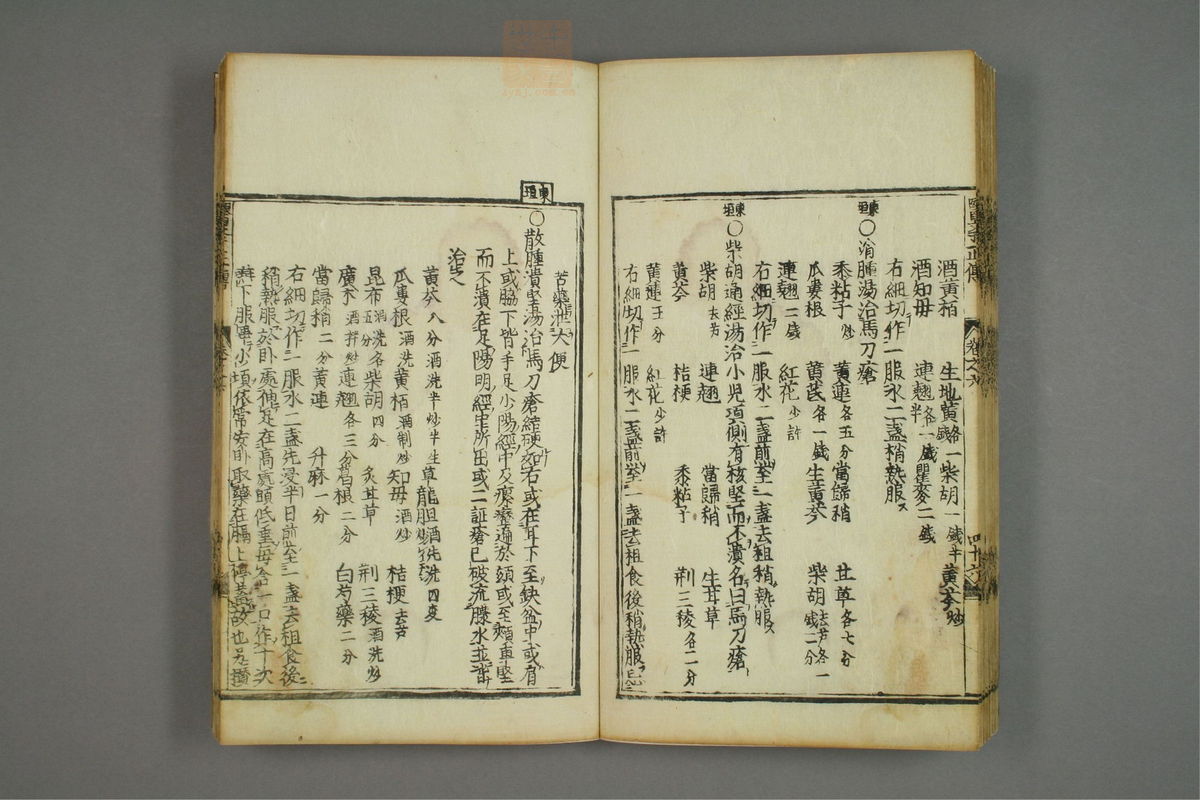 酒黄栢 生地黄各一錢 柴胡一錢半 黄芩炒
酒知毋 連翹各一錢半 瞿麥二錢
右細切作一服水二盞稍熱服
東垣
○消腫湯治馬刀瘡
黍粘子炒 黄連各五分 當歸稍 甘草各七分
瓜蔞根 黄芪各一錢 生黄芩 柴胡去芦各一錢二分
連翹二錢 紅花少許
右細切作一服水二盞煎至一盞去粗稍熱服
東垣
○柴胡通經湯治小兒項側有核堅而不潰名曰馬刀瘡
柴胡去芦 連翹 當歸稍 生甘草
黄芩 桔梗 黍粘子 荆三稜各二分
黄連五分 紅花少許
右細切作一服水二盞煎至一盞去粗食後稍熱服忌
苦藥泄大便
東垣
○散腫潰堅湯治馬刀瘡結硬如右或在耳下至缺盆中或肩
上或脇下皆手足少陽經中及瘰癧遍於頦或至頰車堅
而不潰在足陽明經中所出或二証瘡已破流膿水並皆
治之
黄芩八分酒洗半炒半生 草龍胆酒洗洗四度
瓜蔞根酒洗 黄栢酒制炒 知毋酒炒 桔梗去芦
昆布酒洗各五分 柴胡四分 炙甘草 荆三稜酒洗炒
廣朮酒拌炒 連翹各三分 葛根二分 白芍藥二分
當歸稍二分 黄連 升麻一分
右細切作一服水二盞先浸半日煎至一盞去粗食後
稍熱服於卧處伸足在高處頭低垂每含一口作十次
嚥下服畢小頃依常安卧取藥在膈上停蓄故也另攢